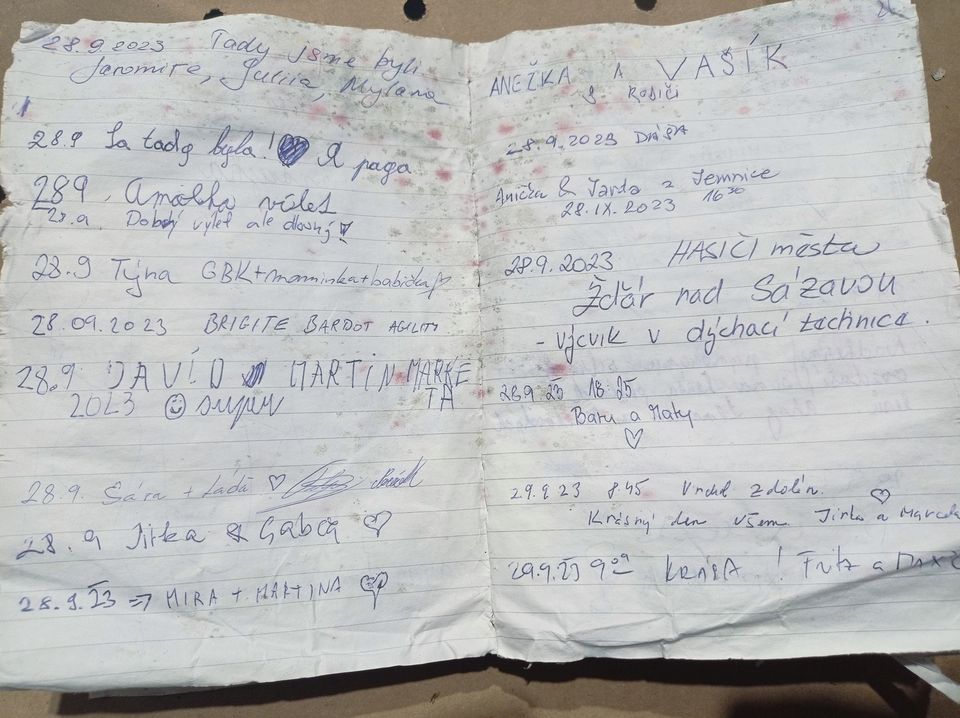 28.9.2023 Tady jsme byli
Jaromíre, Juliia, Mylana
28.9 Ja tady byla! ♥ papa
28.9. Amálka výlet
28.9. Dobrý výlet ale dlouhý!
28.9 Týna GBK+maminka+babička ♡
28.09.2023 BRIGITE BARDOT AGILITY
28.9. DAVID MARTIN MARKÉ
TA
2023 ☺ super
28.9. Sára + Láďa ♡
28.9 Jirka & Gabča ♡
28.9.23 => MIRA + MARTINA ♡
ANEŽKA A VAŠÍK
S RODIČI
28.9.2023 DÁŠA
Anička & Jarda z Jemnice
28.IX.2023 16³⁰
28.9.2023 HASIČI města
Žďár nad Sázavou
- výcvik v dýchací technice.
28.9.23 18:25
Baru a Maty
♡
29.9.23 8.45 Vrchol zdolán.
Krásný den všem Jirka a Marcela ♡
29.9.23 9⁰⁹ KRÁSA! Fritz a